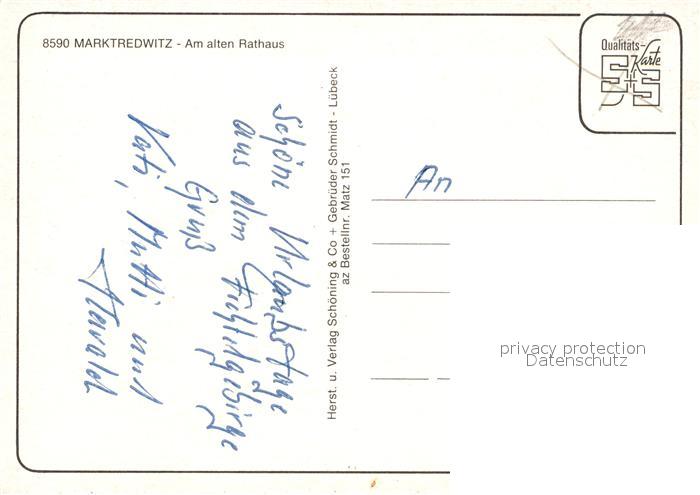 8590 MARKTREDWITZ - Am alten Rathaus
Schöne Urlaubstage
aus dem Fichtelgebirge
Gruß
Vati, Mutti und
Harald
Herst. u. Verlag Schöning & Co + Gebrüder Schmidt - Lübeck
az Bestellnr. Matz 151
Qualitäts-
Karte
S+S
An
privacy protection
Datenschutz